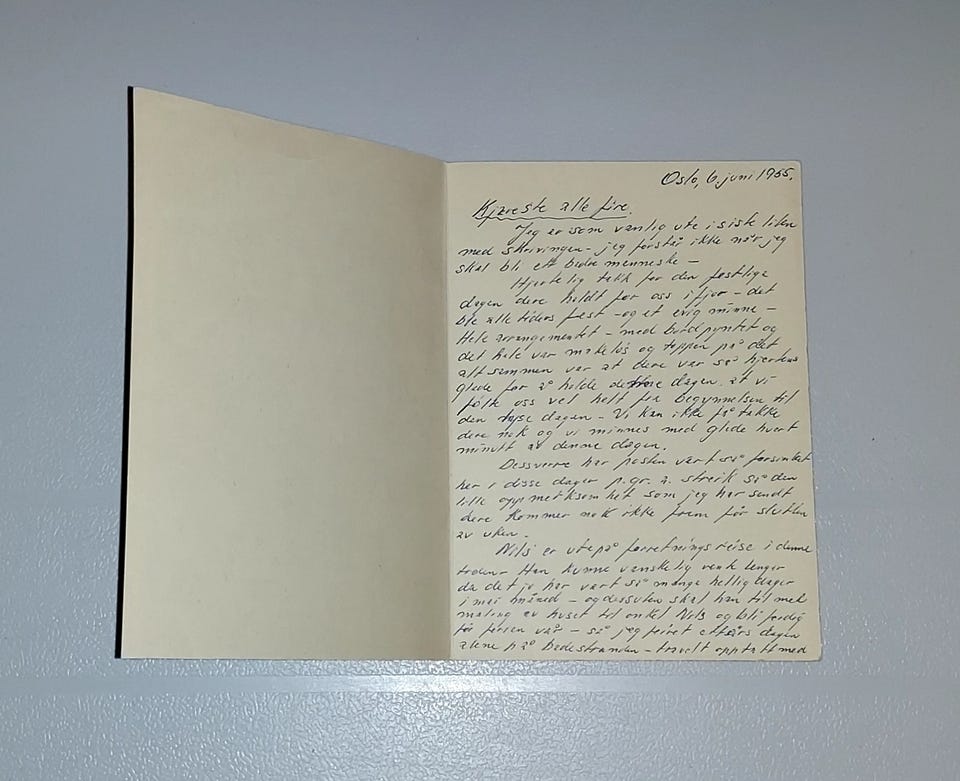 Oslo, 6. juni 1965.
Kjæreste alle fire.
Jeg er som vanlig ute i siste liten
med skrivingen - jeg forstår ikke når jeg
skal bli ett bedre menneske -
Hjertelig takk for den festlige
dagen dere holdt for oss i fjor - det
ble alle tiders fest - og et evig minne -
Hele arrangementet - med bordpyntet og
det hele var makeløs og toppen på det
alt sammen var at dere var så hjertens
glade for å holde denne dagen, at vi
følte oss vel helt fra begynnelsen til
den dagen - Vi kan ikke få takke
dere nok og vi minnes med glede hvert
minutt av denne dagen.
Dessverre har posten vært så forsinket
her i disse dager p.gr. a. streik så den
lille oppmerksomhet som jeg har sendt
dere kommer nok ikke frem før slutten
av uken.
Nils er ute på forretningsreise i denne
tiden. Han kunne vanskelig vente lenger
da det jo har vært så mange helligdager
i mai måned - og dessuten skal han til med
maling av huset til onkel Nils og bli ferdig
før ferien vår - så jeg feiret dagen
alene på badestranden - travelt opptatt med